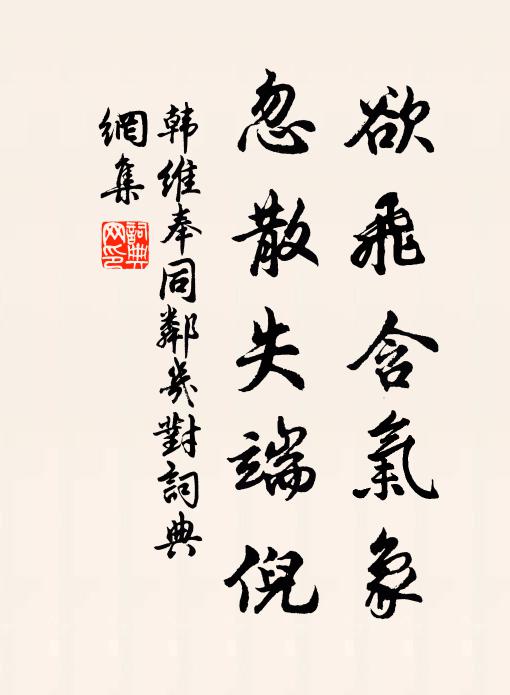 欲飛含氣象
忽散失端倪
韩維奉同鄰幾對詞典
網集
詞典
网印